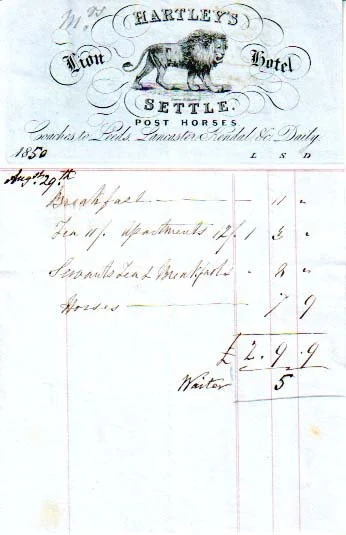 HARTLEY'S
Lion Hotel
SETTLE.
POST HORSES
Coaches to Leeds, Lancaster, Kendal &c. Daily.
1850 L S D
29.th
Breakfast 11 "
Tea 11/. apartments 12/. 1 3 "
Servants Tea & Breakfasts " 8 "
Horses 7 9
£ 2.9.9
Waiter 5